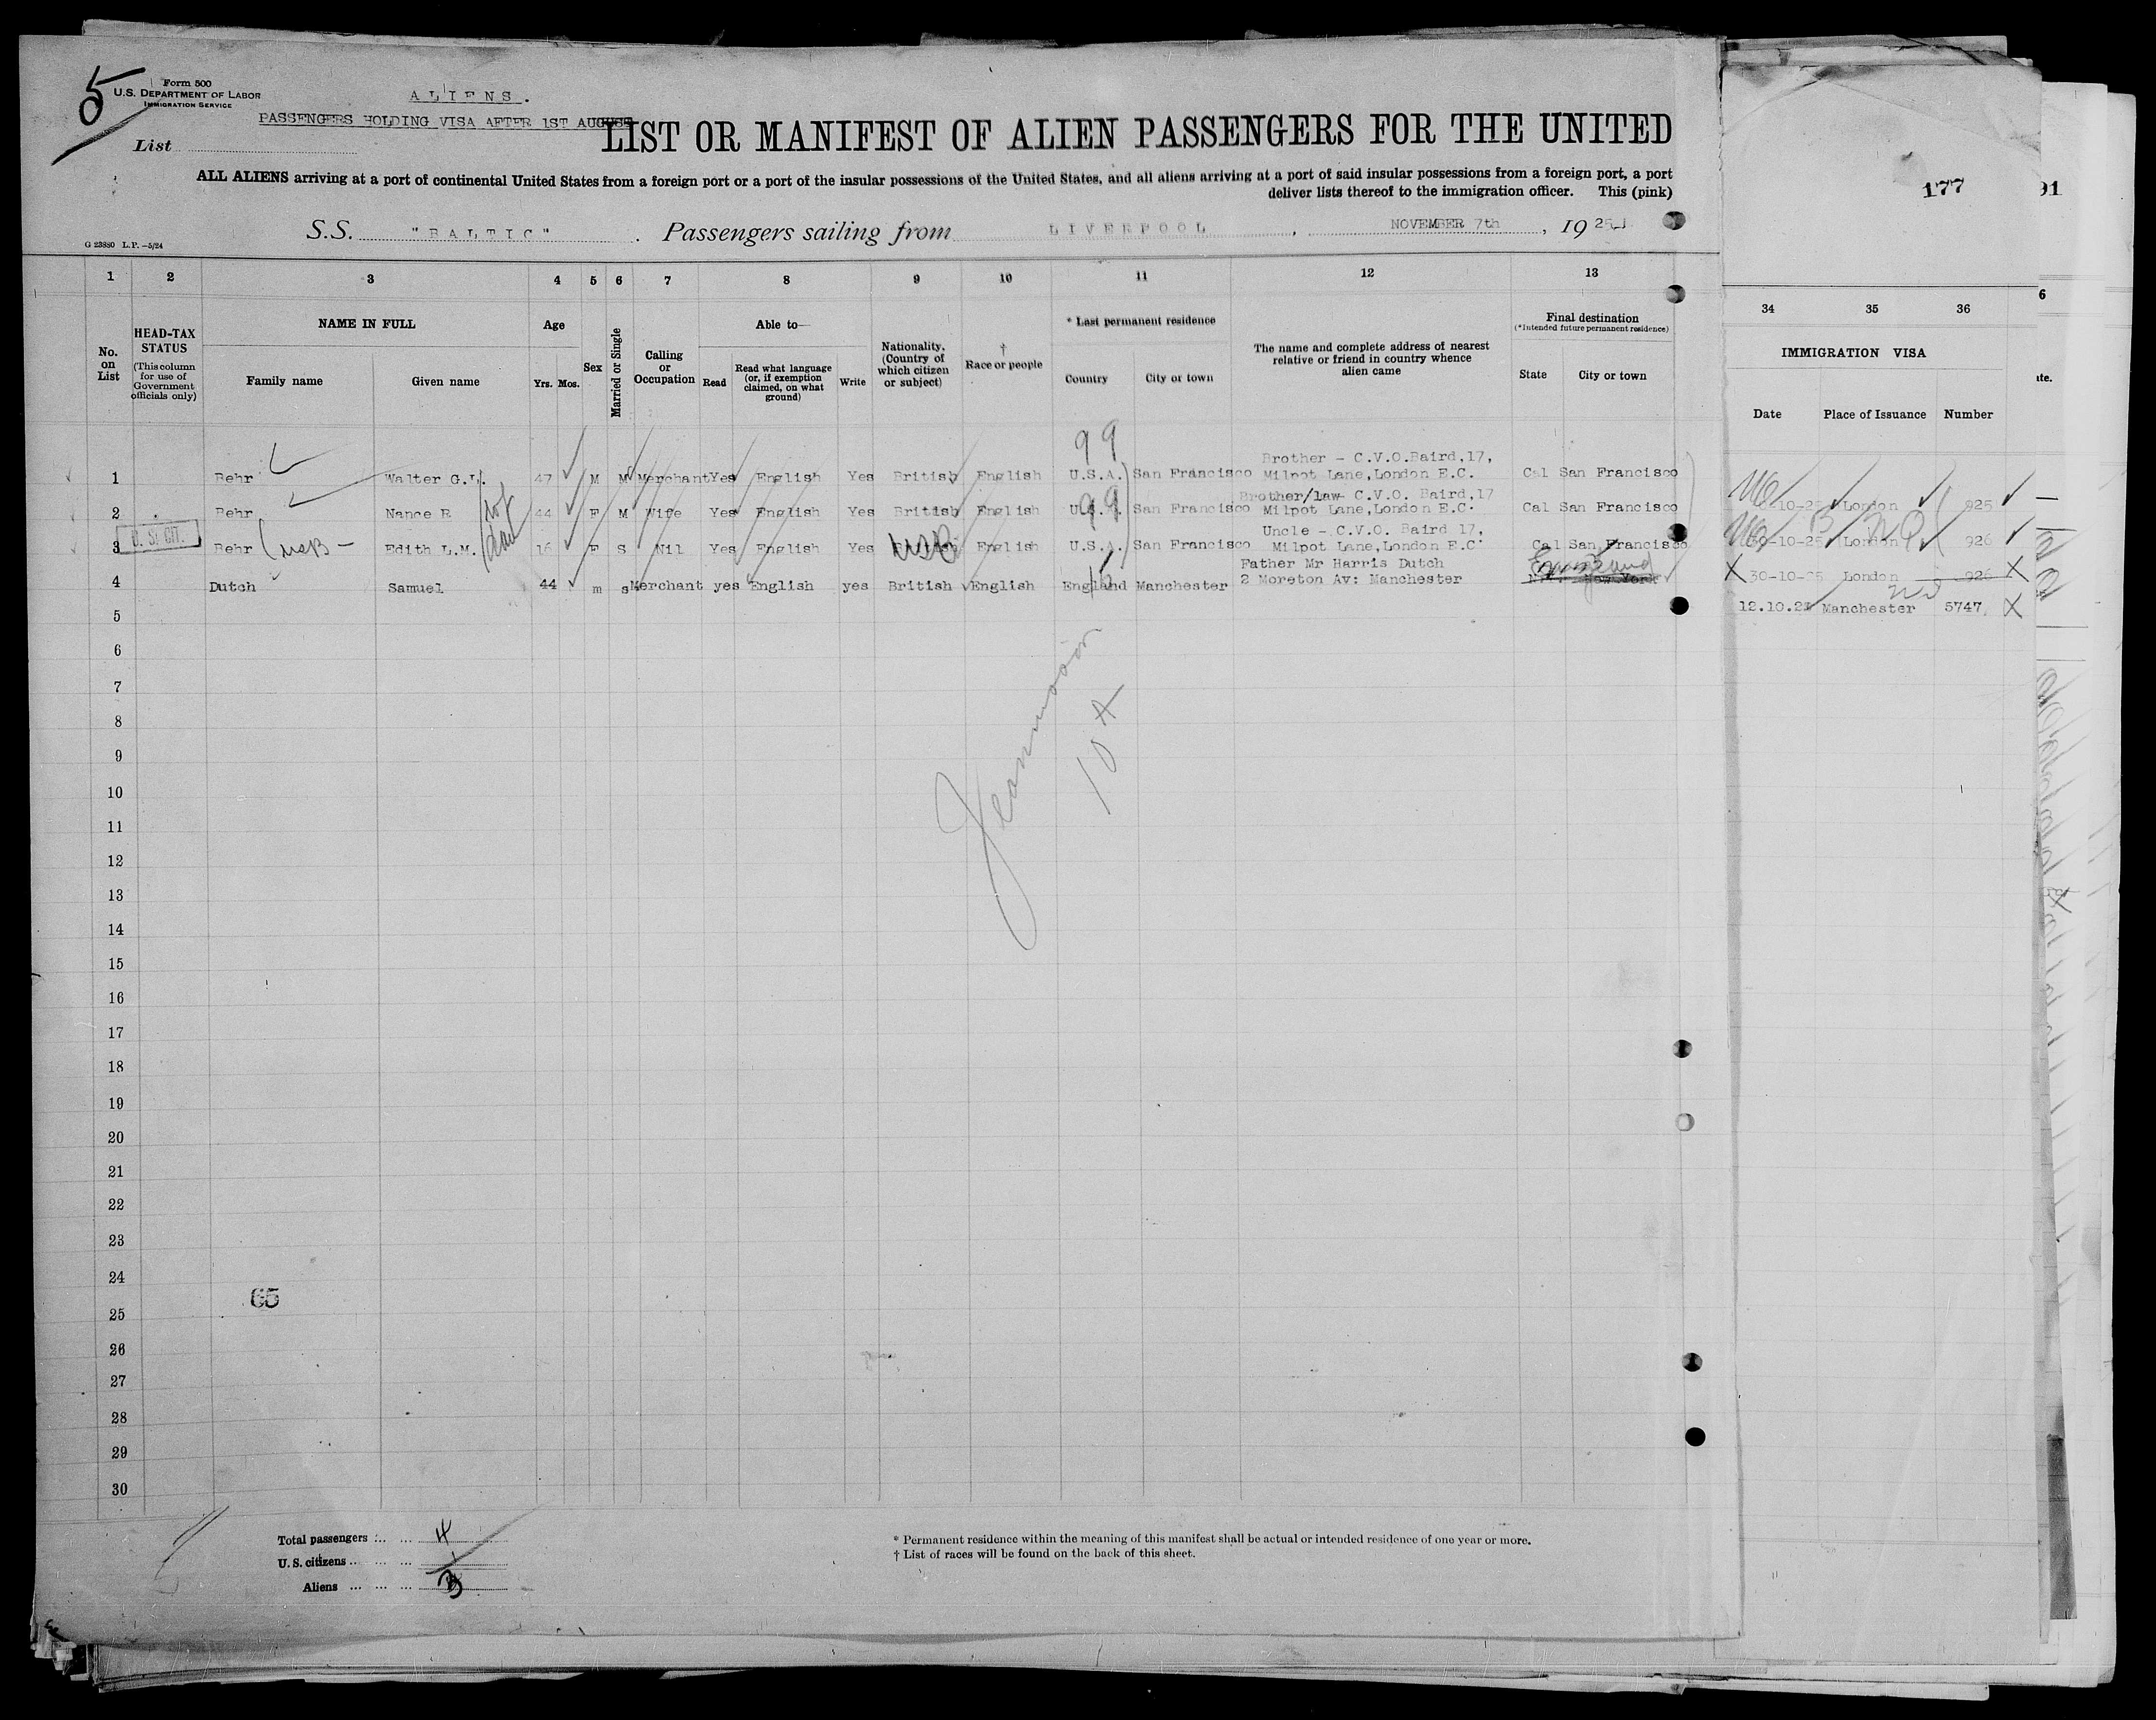 5
Form 500
U.S. DEPARTMENT OF LABOR
IMMIGRATION SERVICE
ALIENS.
PASSENGERS HOLDING VISA AFTER 1ST AUGUST
LIST OR MANIFEST OF ALIEN PASSENGERS FOR THE UNITED
List
ALL ALIENS arriving at a port of continental United States from a foreign port or a port of the insular possessions of the United States, and all aliens arriving at a port of said insular possessions from a foreign port, a port
deliver lists thereof to the immigration officer. This (pink)
177
91
S.S. "BALTIC" . Passengers sailing from LIVERPOOL , NOVEMBER 7th , 1925
G 23880 L.P.—5/24
1 2 3 4 5 6 7 8 9 10 11 12 13
34 35 36 6
No. on List
HEAD-TAX STATUS
(This column for use of Government officials only)
NAME IN FULL
Family name Given name
Age
Yrs. Mos.
Sex
Married or Single
Calling or Occupation
Able to—
Read
Read what language (or, if exemption claimed, on what ground)
Write
Nationality. (Country of which citizen or subject)
† Race or people
* Last permanent residence
Country City or town
The name and complete address of nearest relative or friend in country whence alien came
Final destination
(*Intended future permanent residence)
State City or town
IMMIGRATION VISA
Date Place of Issuance Number
te.
99
Brother - C.V.O.Baird,17,
1 Behr Walter G.L. 47 M M Merchant Yes English Yes British English U.S.A. San Francisco Milpot Lane,London E.C. Cal San Francisco
-10-25 London 925
99
Brother/law- C.V.O. Baird,17
2 Behr Nance B 44 F M Wife Yes English Yes British English U.S. San Francisco Milpot Lane,London E.C. Cal San Francisco
30-10-25 London 926
U. S. CIT.
Uncle - C.V.O. Baird 17,
3 Behr (USB - Edith L.M. 16 F S Nil Yes English Yes USB English U.S.A. San Francisco Milpot Lane,London E.C. Cal San Francisco
X 30-10-25 London 926 X
Father Mr Harris Dutch
England
4 Dutch Samuel 44 m s Merchant yes English yes British English England Manchester 2 Moreton Av: Manchester N.Y. New York
12.10.25 Manchester 5747 X
5
6
7
8
9
10
11
12
13
14
15
16
17
18
19
20
21
22
23
24
25
26
27
28
29
30
10 A
65
Total passengers ... ... 4
U. S. citizens ... ... ... 1
Aliens ... ... ... 3
* Permanent residence within the meaning of this manifest shall be actual or intended residence of one year or more.
† List of races will be found on the back of this sheet.